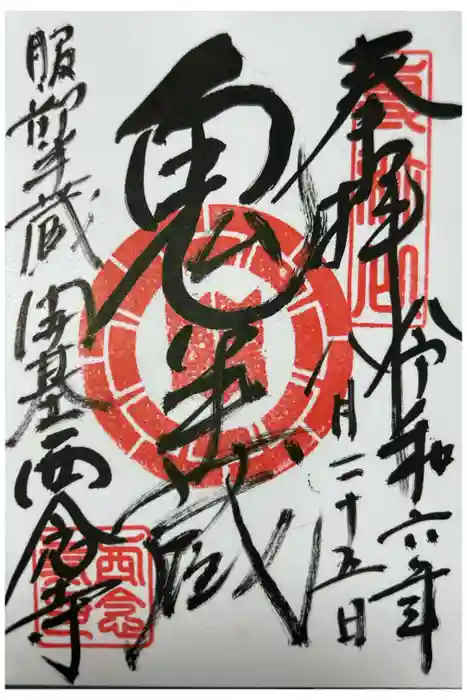 奉拝
令和六年
八月二十五日
鬼半蔵
服部半蔵開基西念寺
西念